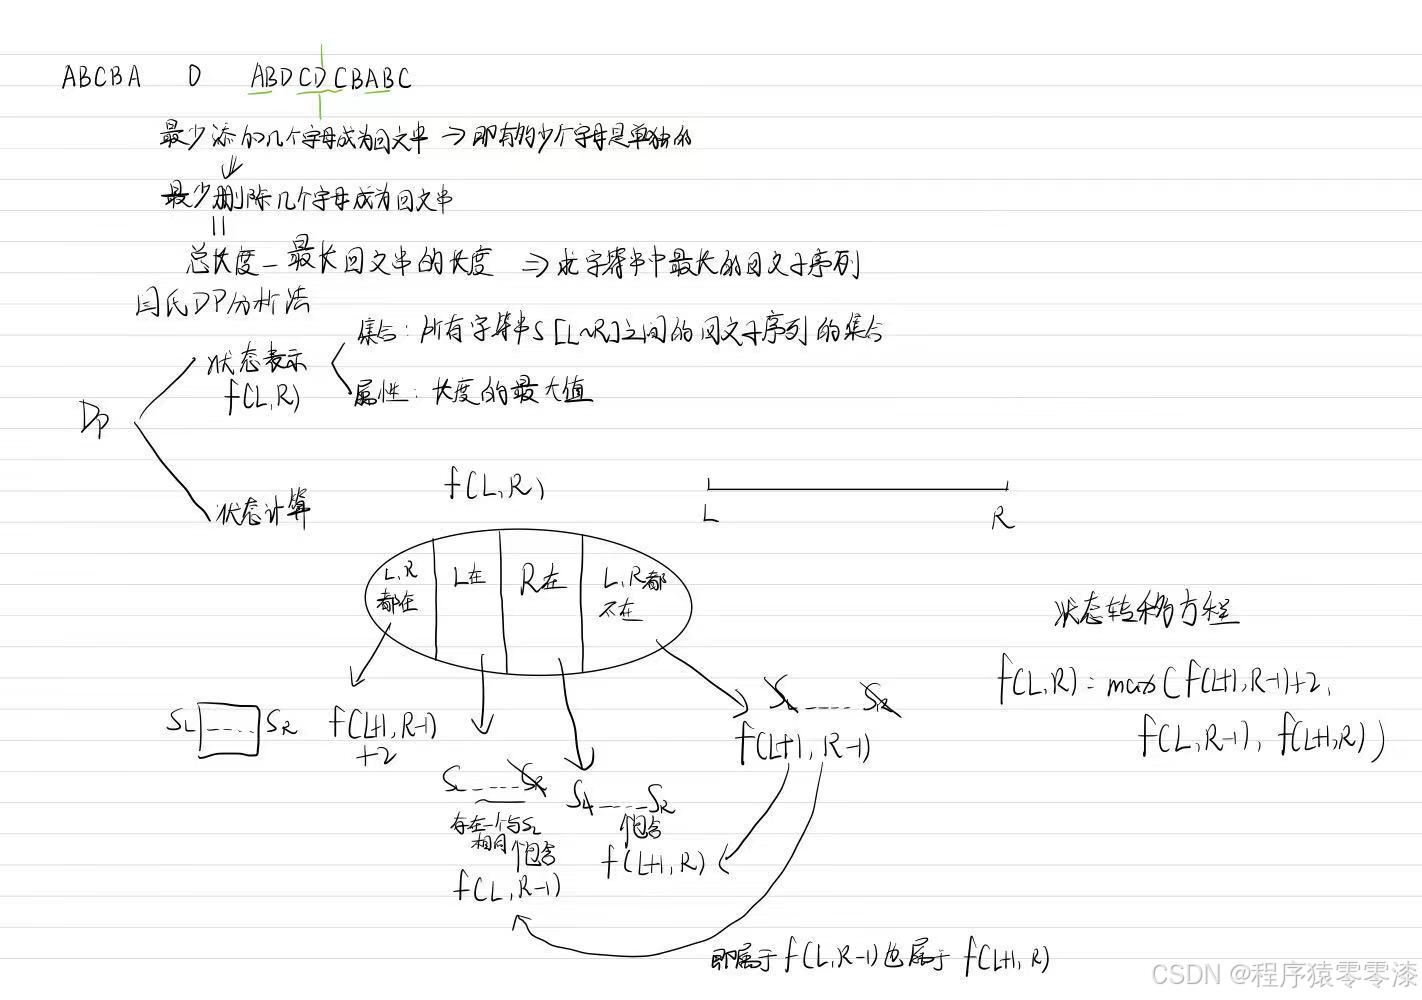 ABCBA 0 ABDCDCBABC
最少添加几个字母成为回文串 ⇒ 即有多少个字母是单独的
最少删除几个字母成为回文串
总长度 - 最长回文串的长度 ⇒ 求字符串中最长的回文子序列
闫氏DP分析法
集合: 所有字符串S[L~R]之间的回文子序列的集合
状态表示
f(L,R)
属性: 长度的最大值
Dp
状态计算
f(L,R)
L R
L,R都在 L在 R在 L,R都不在
状态转移方程
f(L,R) = max(f(L+1,R-1)+2,
f(L,R-1), f(L+1,R))
SL ---- SR
f(L+1,R-1)
+2
f(L+1,R-1)
存在一个与SL
相同
包含
f(L,R-1)
包含
f(L+1,R)
即属于f(L,R-1)也属于f(L+1,R)
CSDN @程序猿零零漆